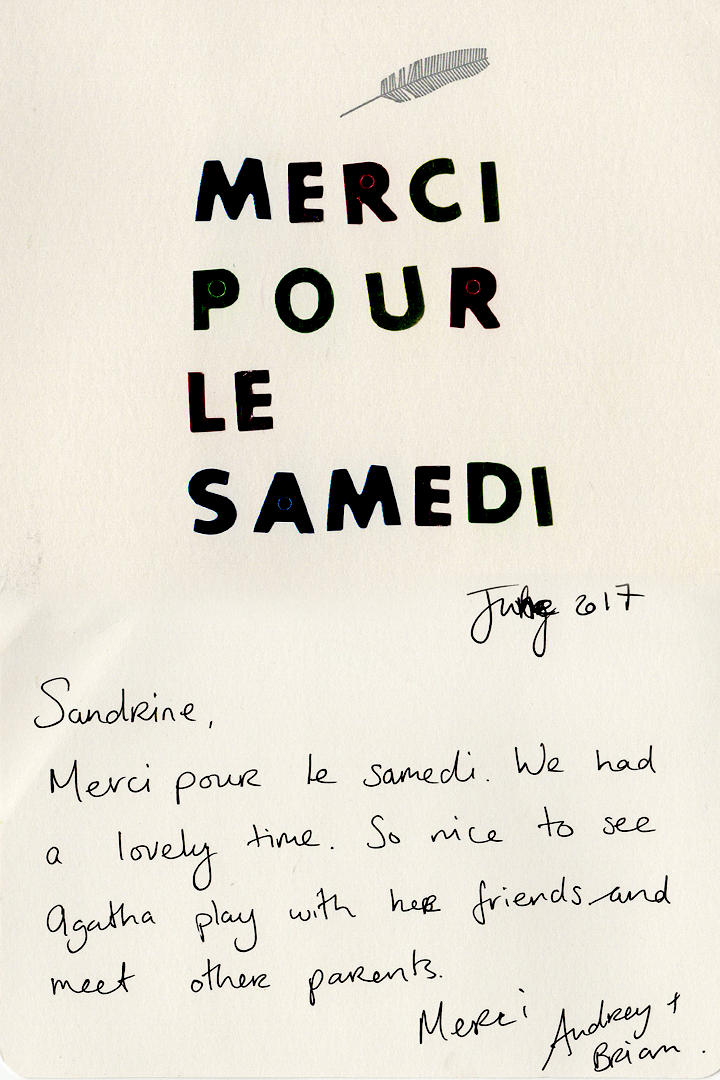 MERCI
POUR
LE
SAMEDI
2017
Sandrine,
Merci pour le samedi. We had
a lovely time. So nice to see
Agatha play with her friends and
meet other parents.
Merci Audrey +
Brian.